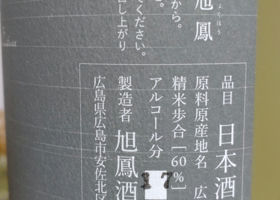 旭鳳
品目 日本酒
原料原産地名 広
精米歩合[60%]
アルコール分 17
製造者 旭鳳酒
広島県広島市安佐北区
ください。
から。
召し上がり